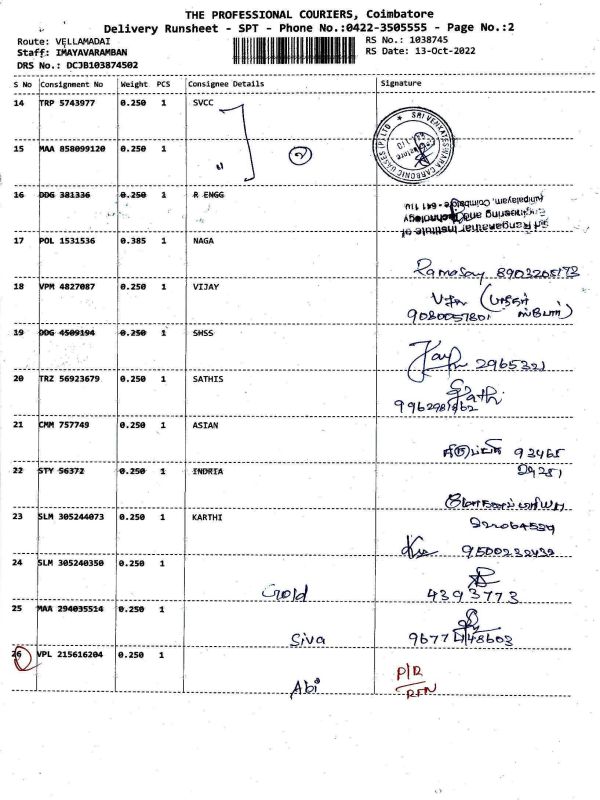 THE PROFESSIONAL COURIERS, Coimbatore
Delivery Runsheet - SPT - Phone No.:0422-3505555 - Page No.:2
Route: VELLAMADAI
RS No.: 1038745
Staff: IMAYAVARAMBAN
RS Date: 13-Oct-2022
DRS No.: DCJB103874502
S No Consignment No Weight PCS Consignee Details Signature
14 TRP 5743977 0.250 1 SVCC
SRI VENKATESWARA CARBONIC GASES (P) LTD
15 MAA 858099120 0.250 1 " 2
16 DDG 381336 0.250 1 R ENGG
Sri Ranganathar Institute of
Engineering and Technology
Coimbatore - 641 110
17 POL 1531536 0.385 1 NAGA
Ramasay 8903205173
18 VPM 4827087 0.250 1 VIJAY
9080057801
19 DDG 4509194 0.250 1 SHSS
2965321
20 TRZ 56923679 0.250 1 SATHIS
Sathi
9962981862
21 CMM 757749 0.250 1 ASIAN
93465
29251
22 STY 56372 0.250 1 INDRIA
23 SLM 305244073 0.250 1 KARTHI
9500232432
24 SLM 305240350 0.250 1
Gold 4393773
25 MAA 294035514 0.250 1
Siva 9677448603
26 VPL 215616204 0.250 1
Abi P/R